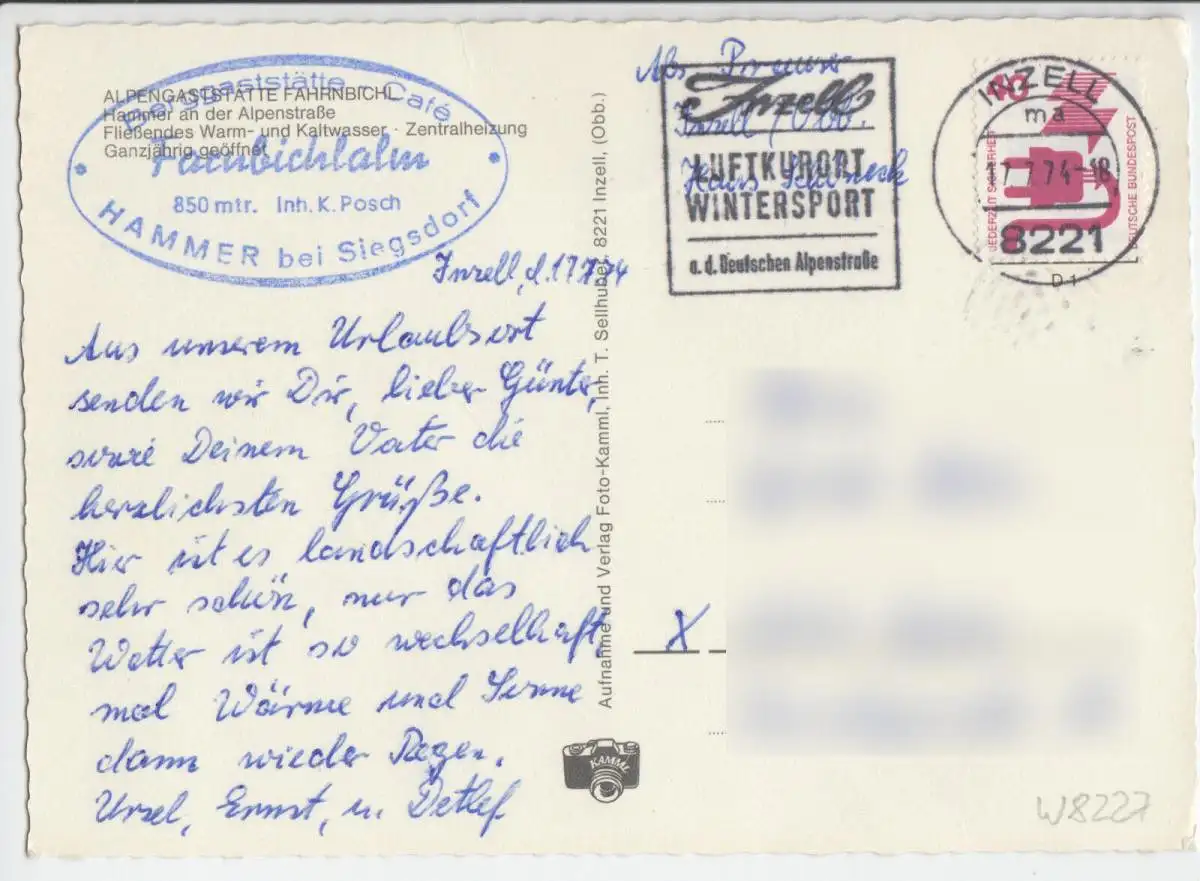 ALPENGASTSTÄTTE FAHRNBICHL
Hammer an der Alpenstraße
Fließendes Warm- und Kaltwasser · Zentralheizung
Ganzjährig geöffnet
Berggaststätte - Café
850 mtr. Inh. K. Posch
HAMMER bei Siegsdorf
Inzell, d. 17.7.74
Aus unserem Urlaubsort
senden wir Dir, lieber Günter,
sowie Deinem Vater die
herzlichsten Grüße.
Hier ist es landschaftlich
sehr schön, nur das
Wetter ist so wechselhaft,
mal Wärme und Sonne
dann wieder Regen.
Ursel, Ernst, u. Detlef
Aufnahme und Verlag Foto-Kamml, Inh. T. Sellhuber, 8221 Inzell, (Obb.)
KAMML
Abs.
Inzell / Obb.
Haus
Inzell
LUFTKURORT
WINTERSPORT
a. d. Deutschen Alpenstraße
INZELL
ma
17.7.74-18
8221
JEDERZEIT SICHERHEIT
DEUTSCHE BUNDESPOST
X
W8227